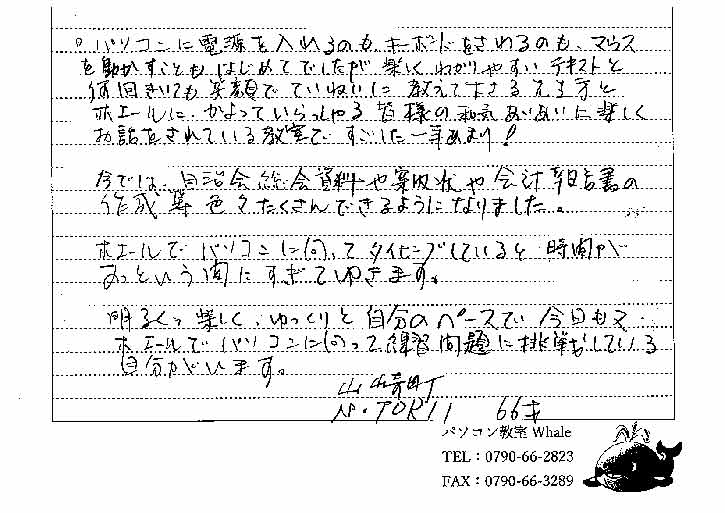 。パソコンに電源を入れるのも、キーボードをさわるのも、マウス
を動かすこともはじめてでしたが楽しくわかりやすいテキストと
何回きいても笑顔でていねいに教えて下さる先生方と
ホエールに、かよっていらっしゃる皆様の和気あいあいに楽しく
お話をされている教室ですごした一年あまり!
今では、自治会総会資料や案内状や会計報告書の
作成等色々たくさんできるようになりました。
ホエールでパソコンに向ってタイピングしていると時間が
あっという間にすぎてゆきます。
明るくっ楽しく、ゆっくりと自分のペースで今日も又
ホエールでパソコンに向って練習問題に挑戦している
自分がいます。
山崎町
N・TORII 66才
パソコン教室 Whale
TEL：0790-66-2823
FAX：0790-66-3289